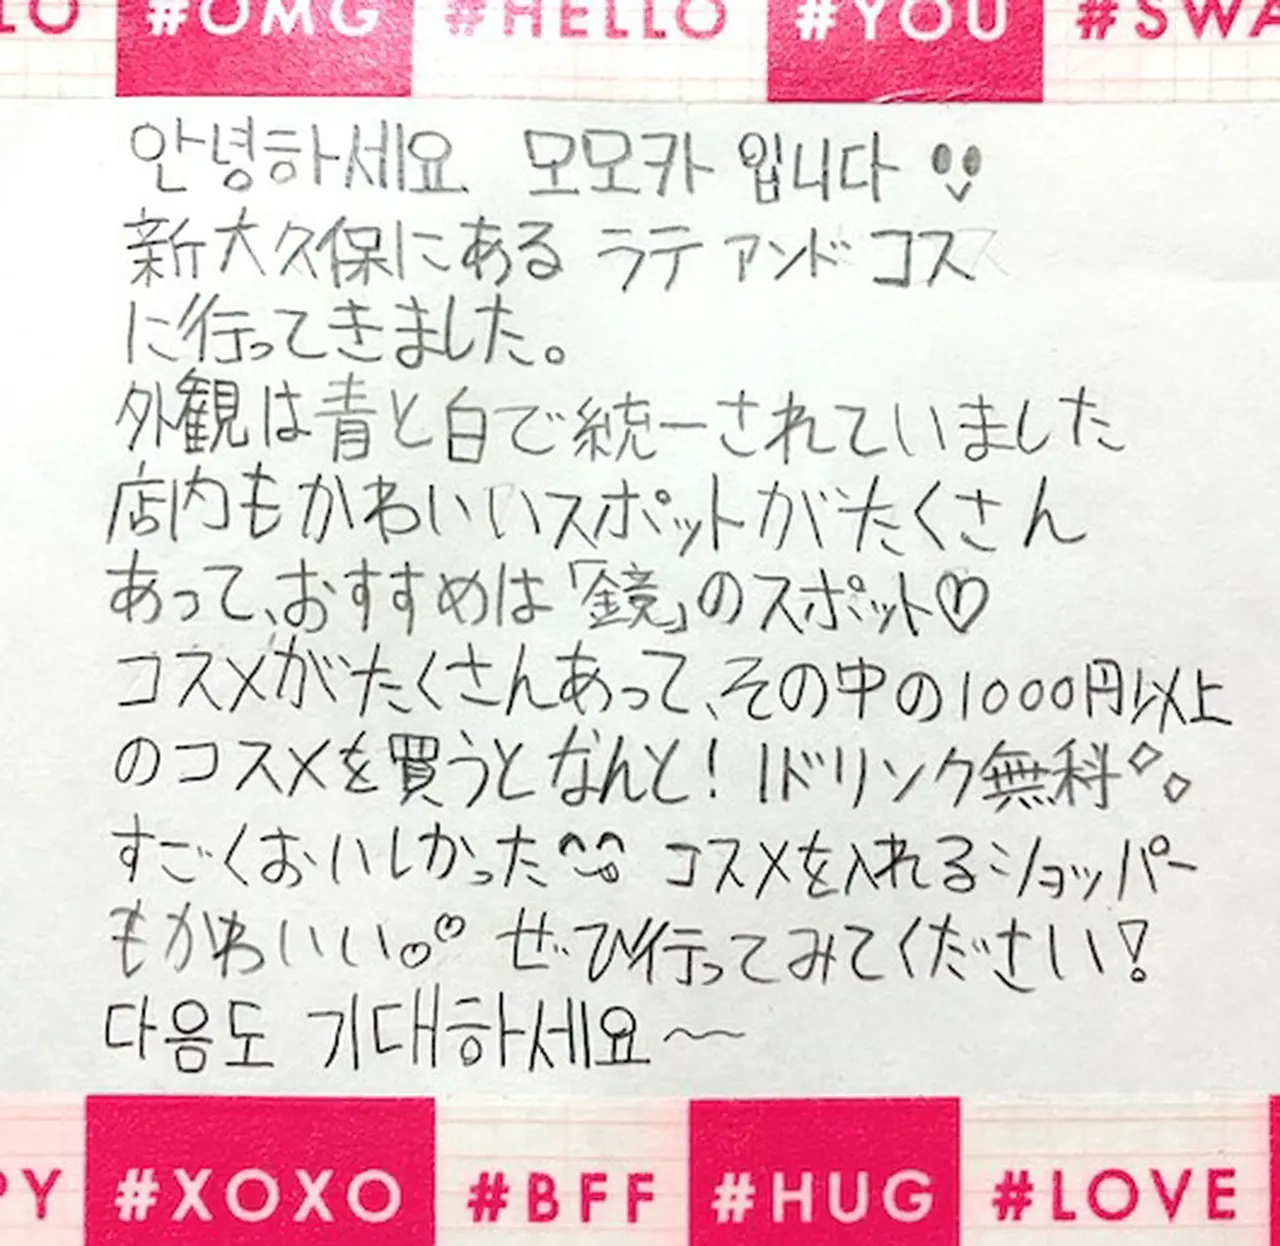 LO #OMG #HELLO #YOU #SWA
안녕하세요. 모모카 입니다
新大久保にある ラテ アンド コス
に行ってきました。
外観は青と白で統一されていました
店内もかわいいスポットがたくさん
あって、おすすめは「鏡」のスポット♡
コスメがたくさんあって、その中の1000円以上
のコスメを買うとなんと!1ドリンク無料
すごくおいしかった^^ コスメを入れるショッパー
もかわいい。♡ ぜひ行ってみてください!
다음도 기대하세요~
PY #XOXO #BFF #HUG #LOVE